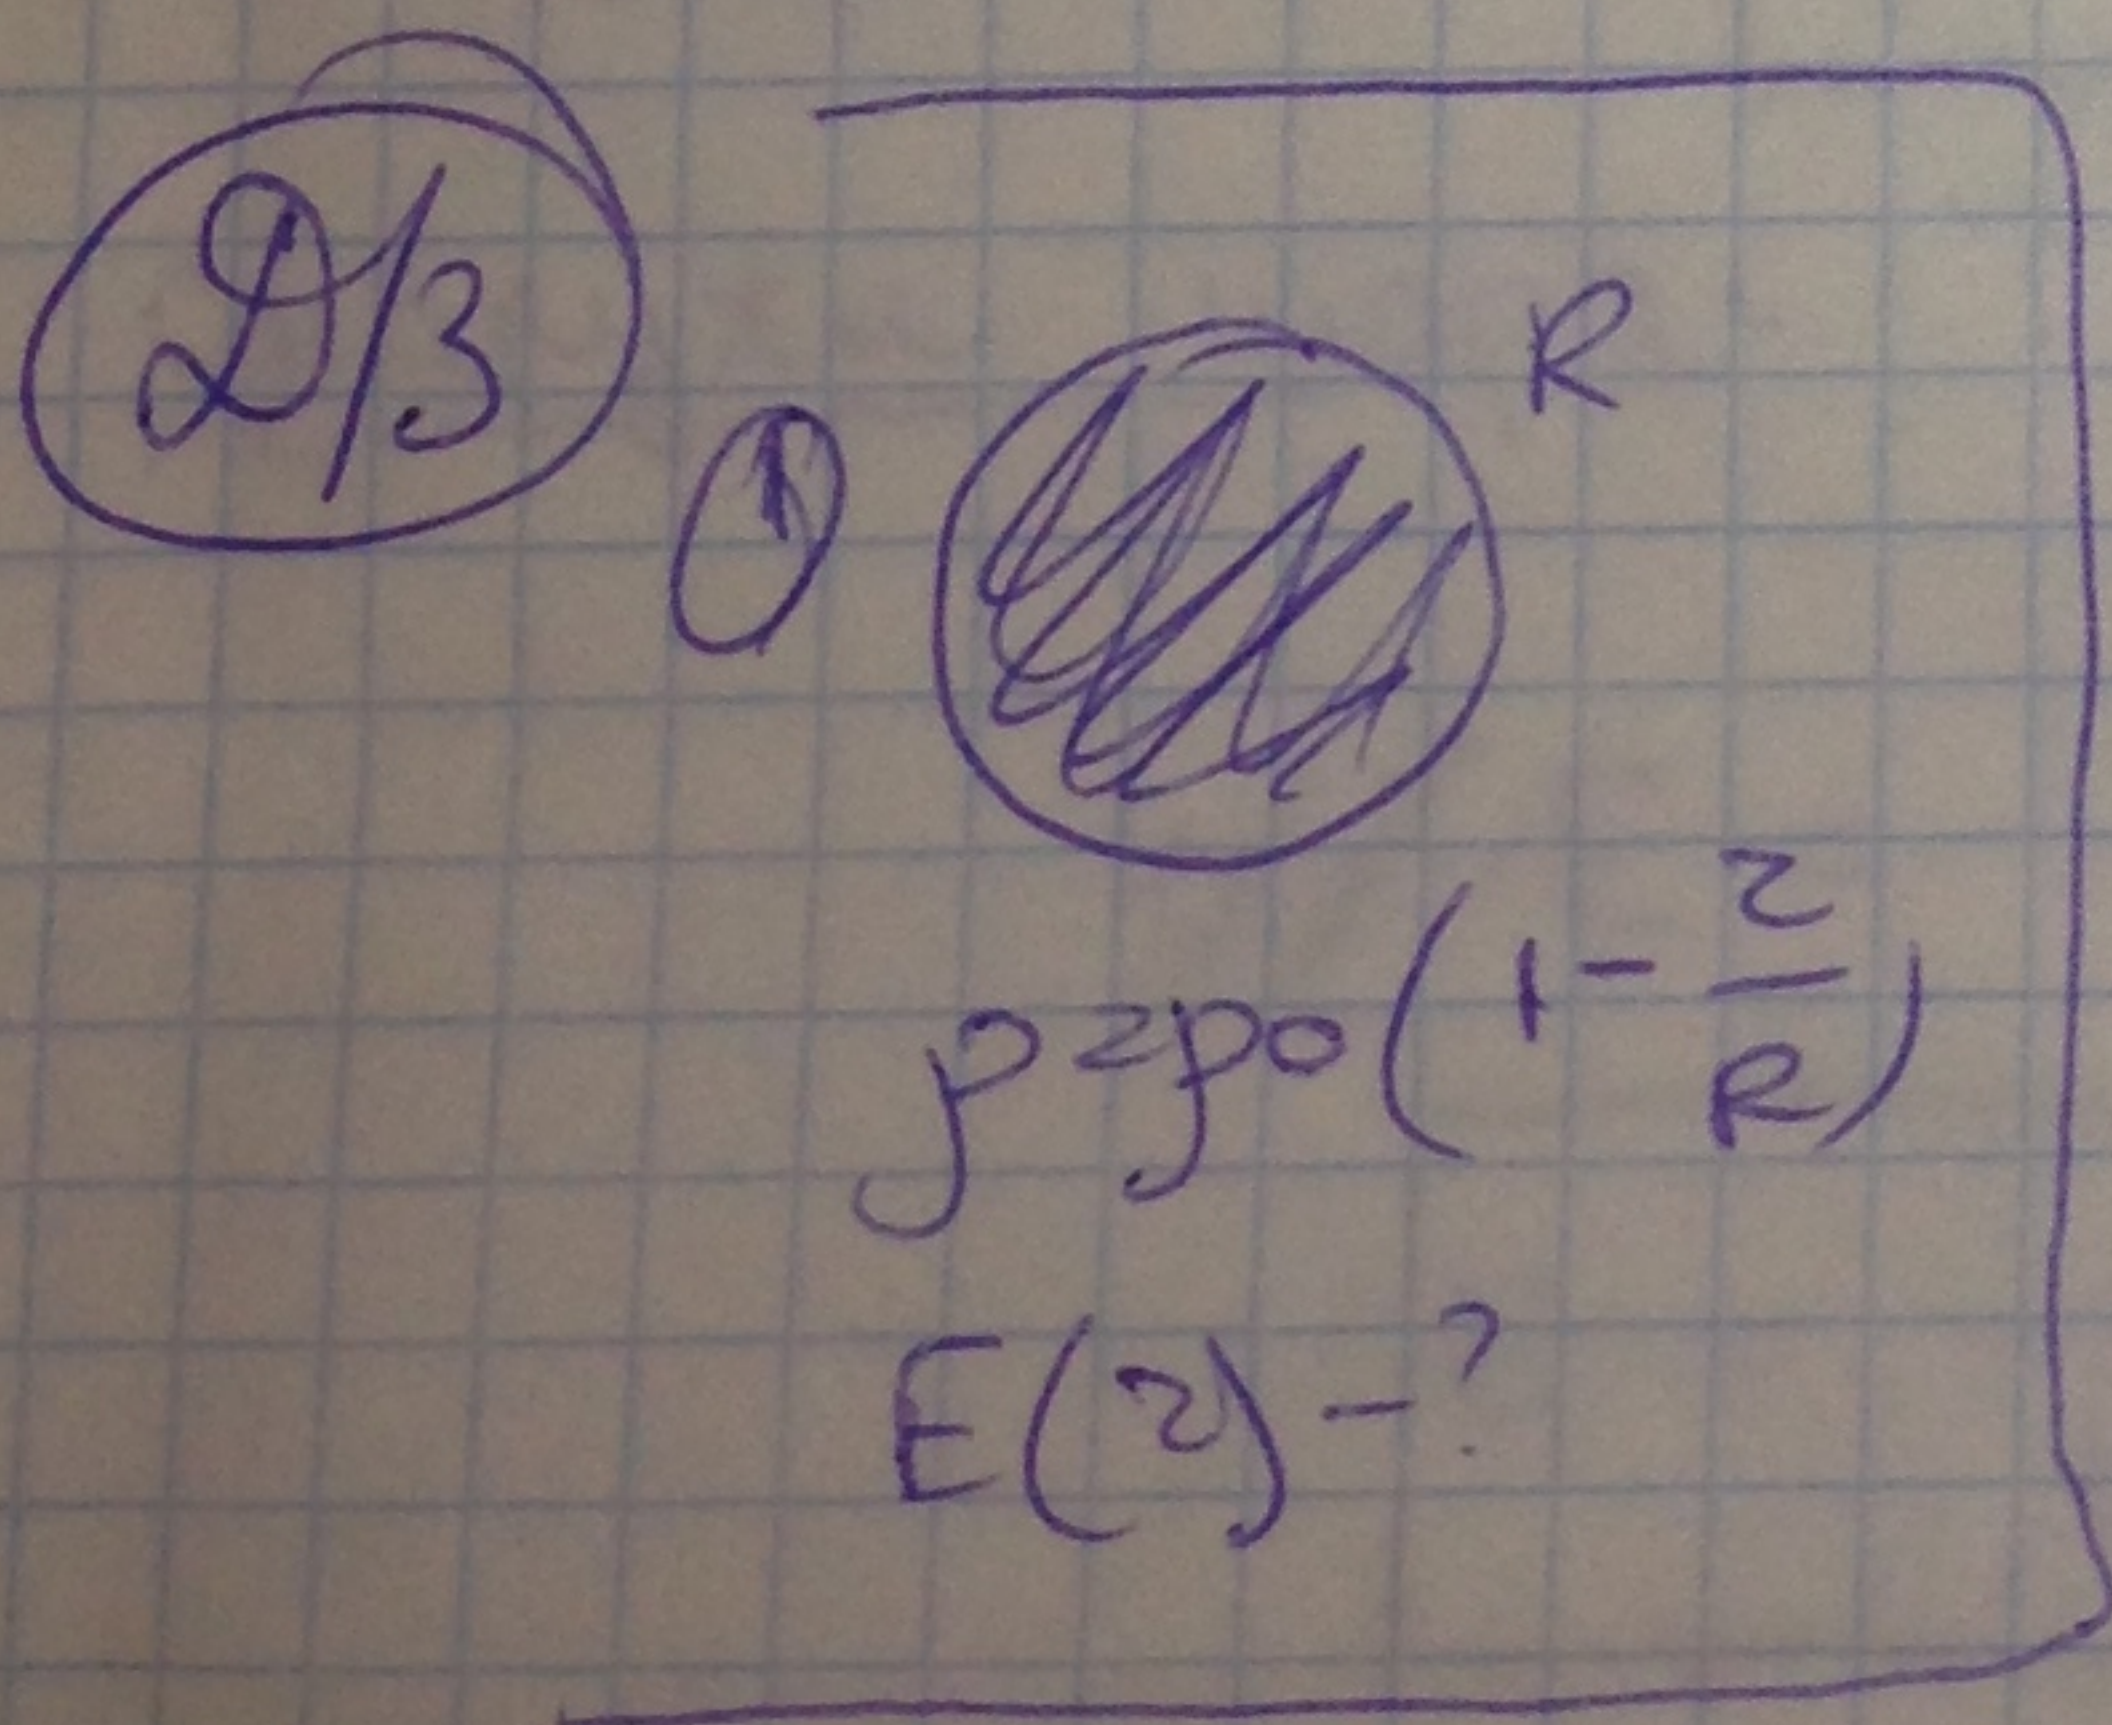 Д/З
R
ρ=ρ0(1-r/R)
E(r)-?